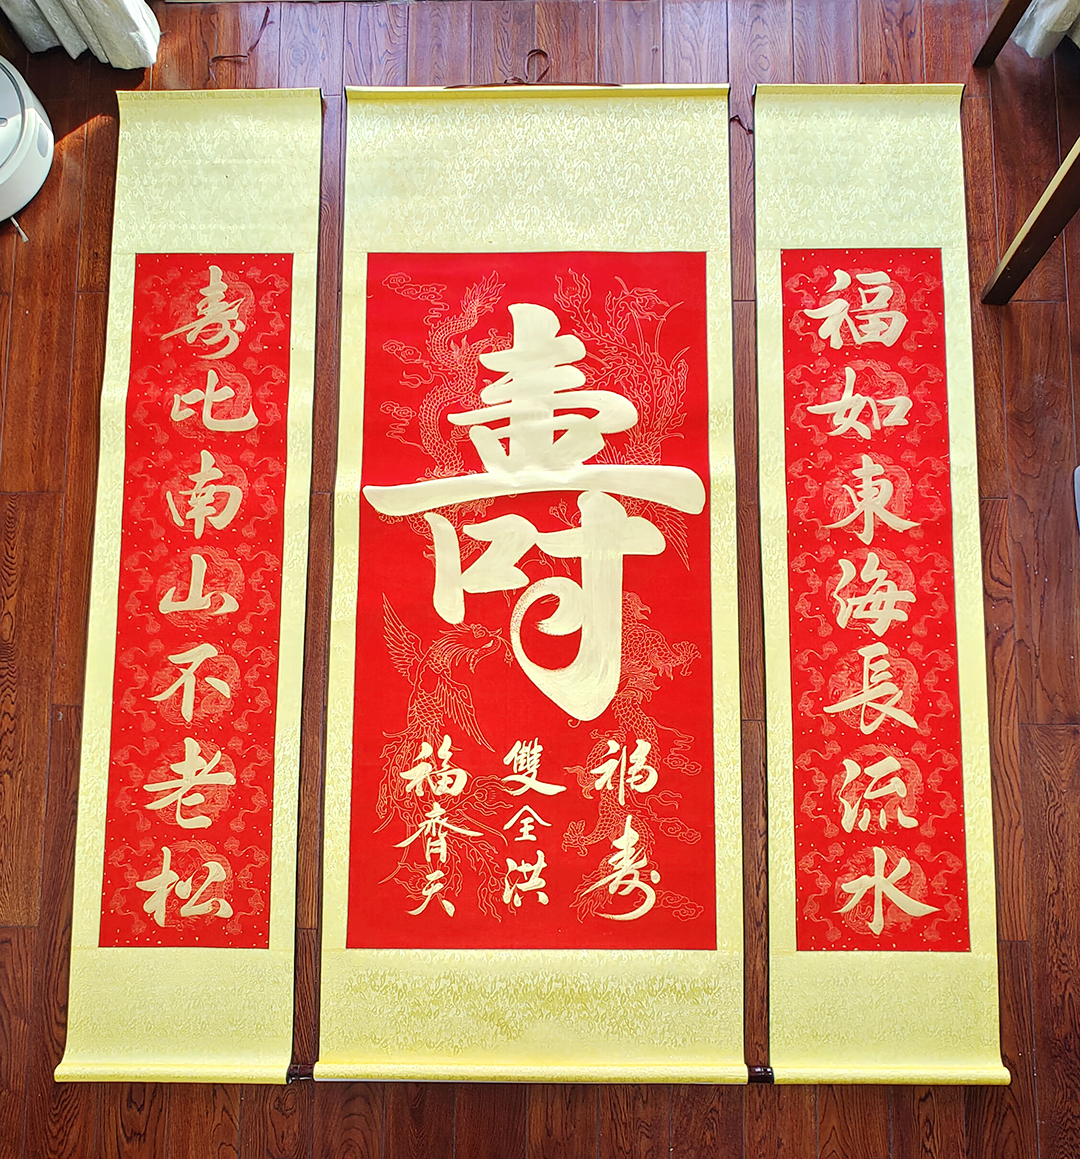 福如東海長流水
壽
福寿
雙全洪
福齊天
寿比南山不老松